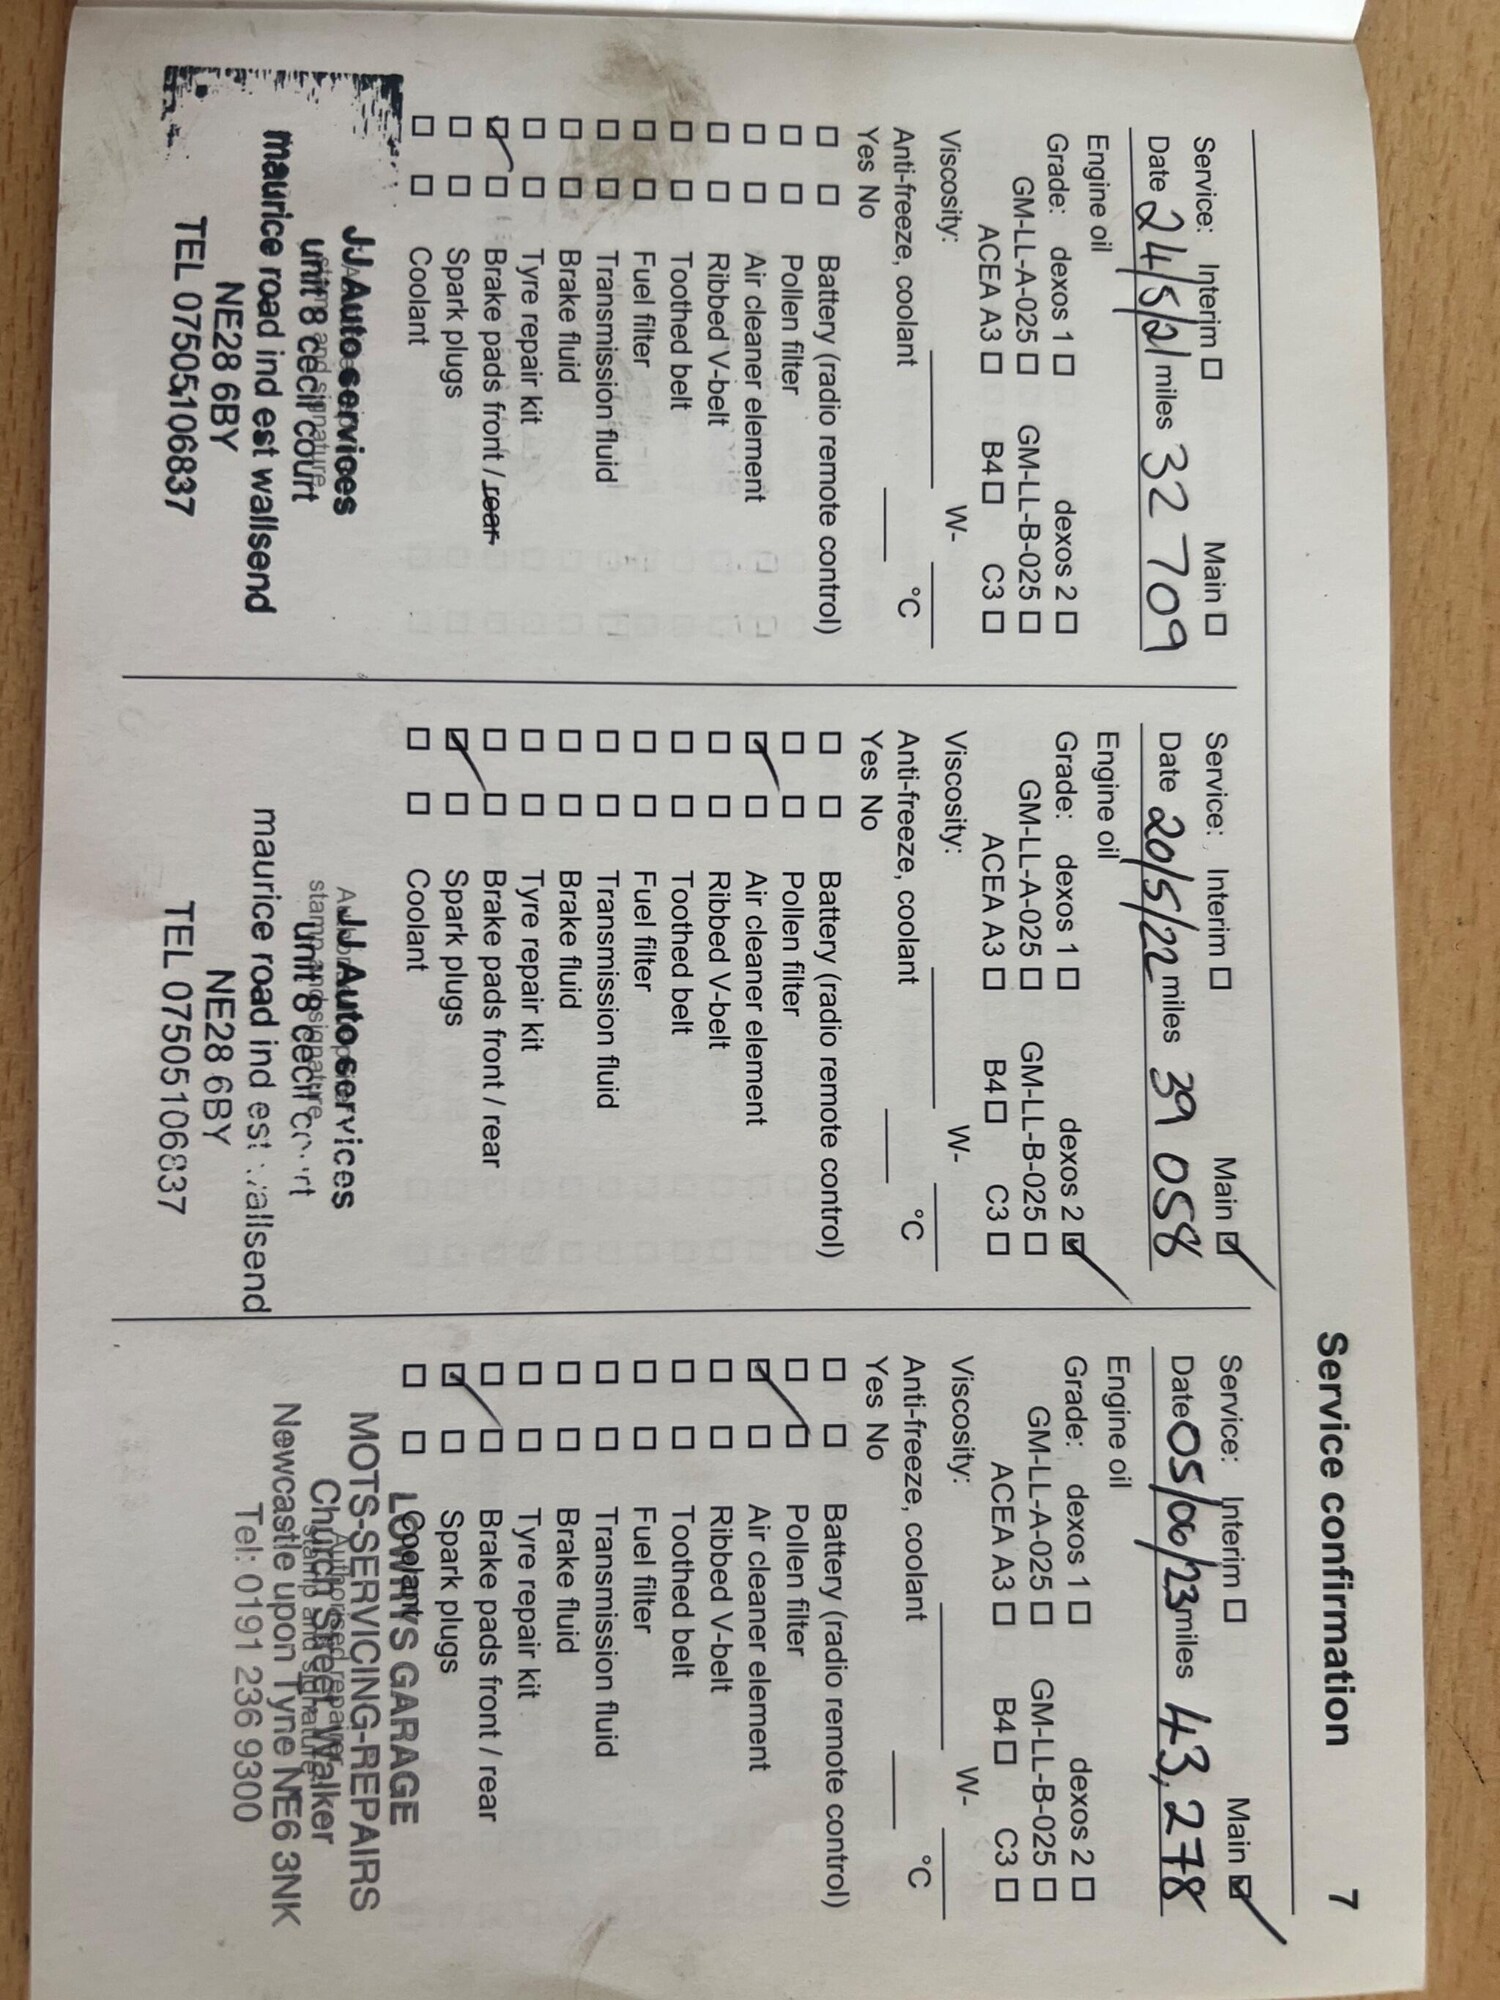 Service confirmation 7
Service: Interim ☐ Main ☐
Date 24/5/21 miles 32 709
Engine oil
Grade: dexos 1 ☐ dexos 2 ☐
GM-LL-A-025 ☐ GM-LL-B-025 ☐
ACEA A3 ☐ B4 ☐ C3 ☐
Viscosity: W-
Anti-freeze, coolant °C
Yes No
☐ ☐ Battery (radio remote control)
☐ ☐ Pollen filter
☐ ☐ Air cleaner element
☐ ☐ Ribbed V-belt
☐ ☐ Toothed belt
☐ ☐ Fuel filter
☐ ☐ Transmission fluid
☐ ☐ Brake fluid
☐ ☐ Tyre repair kit
☑ ☐ Brake pads front / rear
☐ ☐ Spark plugs
☐ ☐ Coolant
JJ Auto services
stamp and signature
unit 8 cecil court
maurice road ind est wallsend
NE28 6BY
TEL 07505106837
Service: Interim ☐ Main ☑
Date 20/5/22 miles 39 058
Engine oil
Grade: dexos 1 ☐ dexos 2 ☑
GM-LL-A-025 ☐ GM-LL-B-025 ☐
ACEA A3 ☐ B4 ☐ C3 ☐
Viscosity: W-
Anti-freeze, coolant °C
Yes No
☐ ☐ Battery (radio remote control)
☐ ☐ Pollen filter
☑ ☐ Air cleaner element
☐ ☐ Ribbed V-belt
☐ ☐ Toothed belt
☐ ☐ Fuel filter
☐ ☐ Transmission fluid
☐ ☐ Brake fluid
☐ ☐ Tyre repair kit
☐ ☐ Brake pads front / rear
☑ ☐ Spark plugs
☐ ☐ Coolant
JJ Auto services
stamp and signature
unit 8 cecil court
maurice road ind est wallsend
NE28 6BY
TEL 07505106837
Service: Interim ☐ Main ☑
Date 05/06/23 miles 43,278
Engine oil
Grade: dexos 1 ☐ dexos 2 ☐
GM-LL-A-025 ☐ GM-LL-B-025 ☐
ACEA A3 ☐ B4 ☐ C3 ☐
Viscosity: W-
Anti-freeze, coolant °C
Yes No
☐ ☐ Battery (radio remote control)
☐ ☐ Pollen filter
☑ ☐ Air cleaner element
☐ ☐ Ribbed V-belt
☐ ☐ Toothed belt
☐ ☐ Fuel filter
☐ ☐ Transmission fluid
☐ ☐ Brake fluid
☐ ☐ Tyre repair kit
☐ ☐ Brake pads front / rear
☑ ☐ Spark plugs
☐ ☐ Coolant
LOWRYS GARAGE
MOTS-SERVICING-REPAIRS
Authorised repairer
Church Street Walker
stamp and signature
Newcastle upon Tyne NE6 3NK
Tel: 0191 236 9300